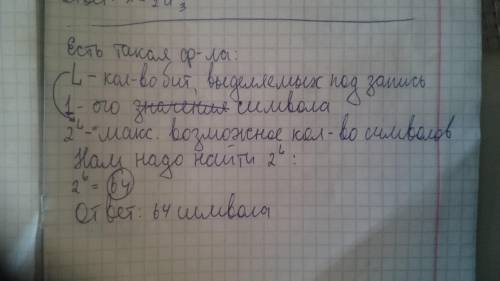 Есть такая ф-ла:
L - кол-во бит, выделяемых под запись
1-ого значения символа
2ᴸ - макс. возможное кол-во символов
Нам надо найти 2ᴸ:
2⁶ = 64
Ответ: 64 символа